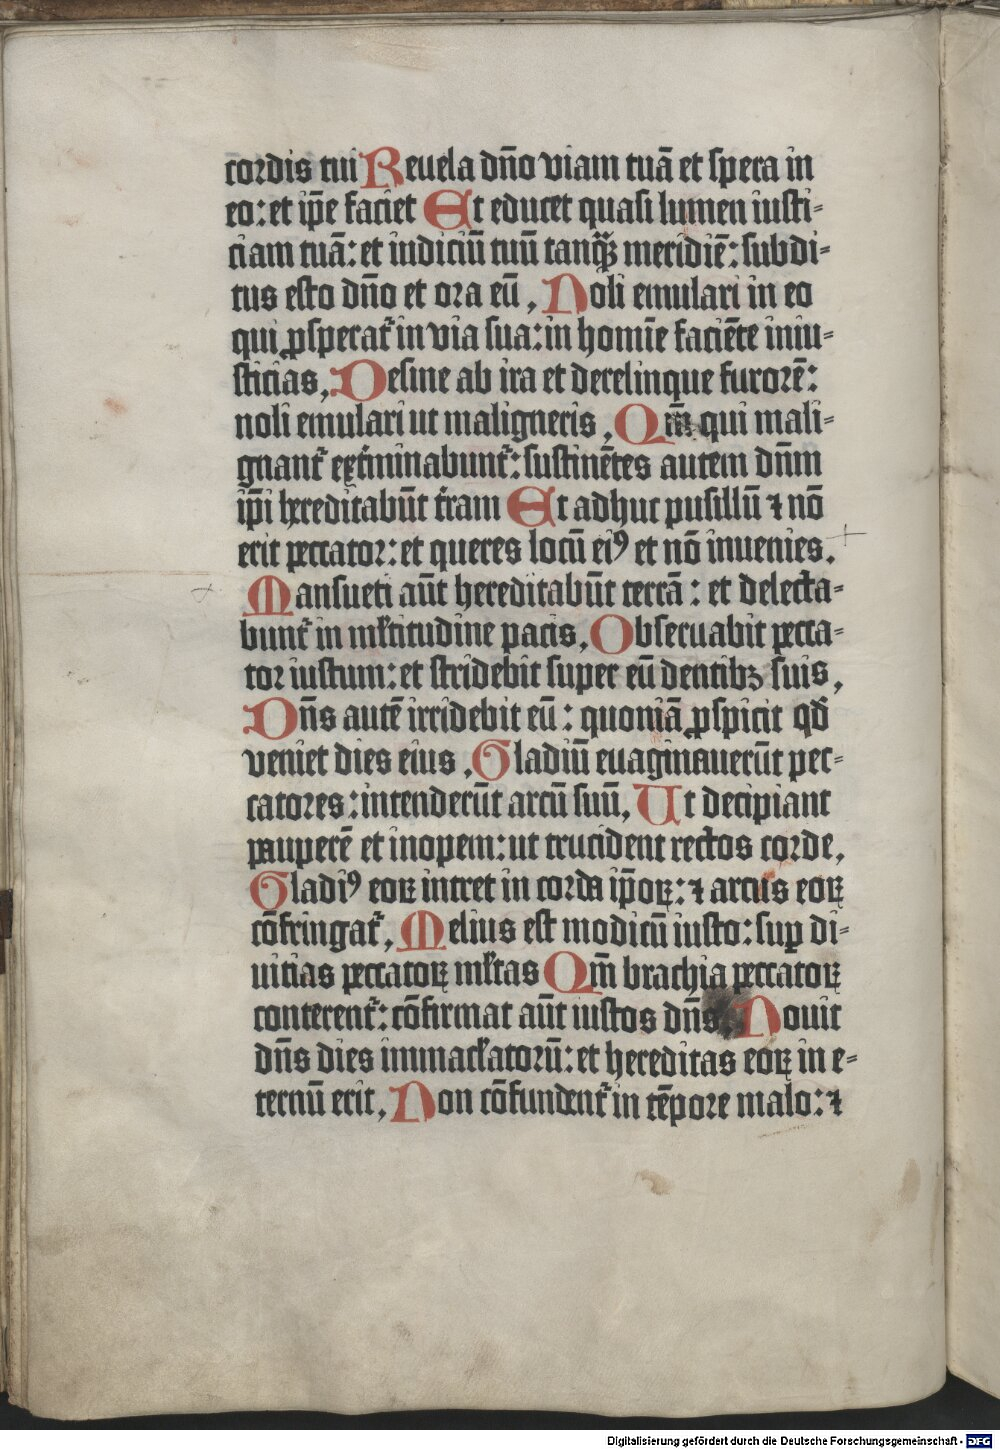 cordis tui Reuela dn̄o viam tuā et spera in
eo: et ip̄e faciet Et educet quasi lumen iusti-
ciam tuā: et iudiciū tuū tanqꝫ meridiē: subdi-
tus esto dn̄o et ora eū, Noli emulari in eo
qui ꝓsperat᷑ in via sua: in homīe faciēte iniu-
sticias, Desine ab ira et derelinque furorē:
noli emulari ut maligneris, Qm̄ qui mali-
gnant᷑ ext̓minabunt᷑: sustinētes autem dn̄m
ip̄i hereditabūt t̓ram Et adhuc pusillū ⁊ nō
erit peccator: et queres locū eiꝰ et nō inuenies.
Mansueti aūt hereditabūt terrā: et delecta-
bunt᷑ in ml̓titudine pacis, Obseruabit pecca-
tor iustum: et stridebit super eū dentibꝫ suis,
Dn̄s autē irridebit eū: quoniā ꝓspicit qd̓
veniet dies eius, Gladiū euaginauerūt pec-
catores: intenderūt arcū suū, Ut decipiant
pauperē et inopem: ut trucident rectos corde,
Gladiꝰ eoꝝ intret in corda ip̄oꝝ: ⁊ arcus eoꝝ
cōfringat᷑, Melius est modicū iusto: suꝑ di-
uitias peccatoꝝ ml̓tas Qm̄ brachia peccatoꝝ
conterent᷑: cōfirmat aūt iustos dn̄s, Nouit
dn̄s dies immacl̓atorū: et hereditas eoꝝ in e-
ternū erit, Non cōfundent᷑ in tēpore malo: ⁊
Digitalisierung gefördert durch die Deutsche Forschungsgemeinschaft - DFG